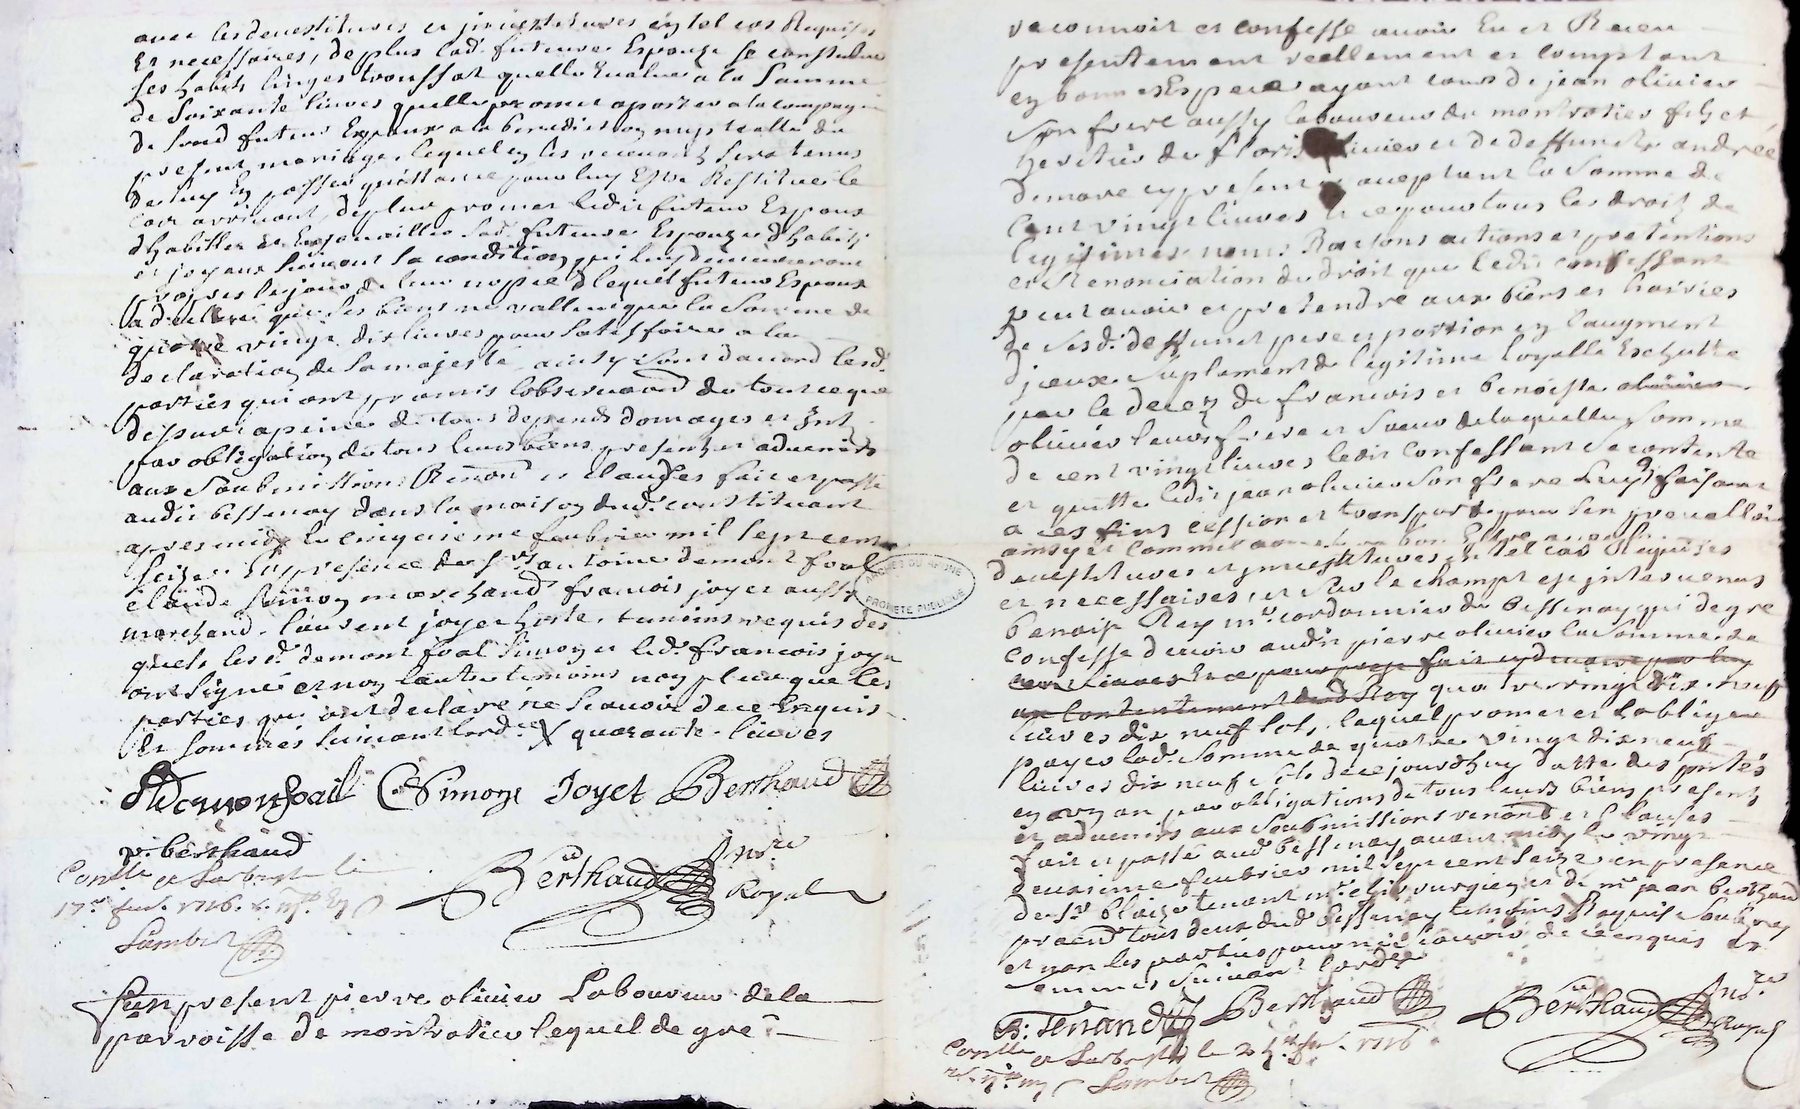 avec les devestitures et jnvestitures en tel cas Requises
Et necessaires, de plus lad. future Espouze se constitue
ses habits linges troussat quelle Evalue a la somme
de soixante livres quelle promet aporter a la compagnie
de sond futur Espoux a la benediction nuptialle du
present mariage, lequel en les recevant sera tenus
de luy En passer quittance pour luy Estre Restituée le
cas arrivant, deplus promet ledit futeur Espoux
dhabiller Et Enjouailler lad. future Espouze dhabits
et joyaux suivant sa condition qui luy demeureront
propres le jour de leur nopce & lequel futeur Espoux
a declaré que ses biens ne vallent que la somme de
quatre vingt dix livres pour satisfaire a la
declaration de sa majesté ainsy sont daccord lesd.
parties qui ont promis lobserver du tout ce que
dessus a peine de tous depends domages et Int
par obligation de tous leurs biens presents et advenirs
aux soubmissions Renon et clauses fait et passé
audit bessenay dans la maison dud. constituant
apres midy le cinquieme febvrier mil sept cent
seize En presence de sr antoine demont foal
claude simon marchand francois joyet aussy
marchand, laurent joyet hoste, temoins requis des
quels lesd. demont foal simon et led. francois joyet
ont signé et non lautre temoins non plus que les
parties qui ont declaré ne scavoir de ce Enquis
Et sommés suivant lord.ce X quarante livres
CSimon Joyet Berthaud
p. berthaud
Conlle et
17e fev. 1716.
Lambert
Berthaud
Royal
Fut present pierre olivier Laboureur de la
parroisse de montrotier lequel de gré
reconnoit et confesse avoir Eu et Receu
presentement reellement et comptant
en bonnes Especes ayant cours de jean olivier
son frere aussy laboureur de montrotier fils et
heritier de olivier et de deffuncte andrée
demare cy present et aceptant la somme de
cent vingt livres et ce pour tous les droits de
legitimes noms Raisons actions et pretentions
et Renonciation du droit que ledit confessant
peut avoir et pretendre aux biens et hoiries
de sesd. deffunct pere portion en laugment
djceux suplement de legitime loyalle Eschutte
par le decez de francois et benoiste
olivier leurs frere et soeur de laquelle somme
de cent vingt livres ledit confessant se contente
et quitte ledit jean olivier son frere luy faisant
a ces fins cession et transport pour sen prevalloir
ainsy et comme bon
devestitures et jnvestitures en tel cas Requises
et necessaires, et sur le champt est jntervenus
benoist Rey mr. cordonnier de bessenay qui de gré
confesse devoir audit pierre olivier la somme de
quatre vingt dix neuf
livres dix neuf sols, lequel promet et soblige
payer lad. somme de quatre vingt dix neuf
livres dix neuf sols de ce jourdhuy datte des pntes
en un an par obligations de tous leurs biens presents
et advenirs aux soubmissions renond et clauses
fait et passé aud bessenay avant midy le vingt
deuxieme febvrier mil sept cent seize en presence
de sr. blaize tenant mre chirurgien et de mr jean berthaud
pracn tous deux dud. bessenay temoins Requis soubsignes
et non les parties pour ne scavoir de ce enquis et
sommes suivant lordce
B: Tenand Berthaud
Berthaud
Royal
Conlle et le 24e fev. 1716
Lambert
ARCHIVES DU RHÔNE
PROPRIÉTÉ PUBLIQUE